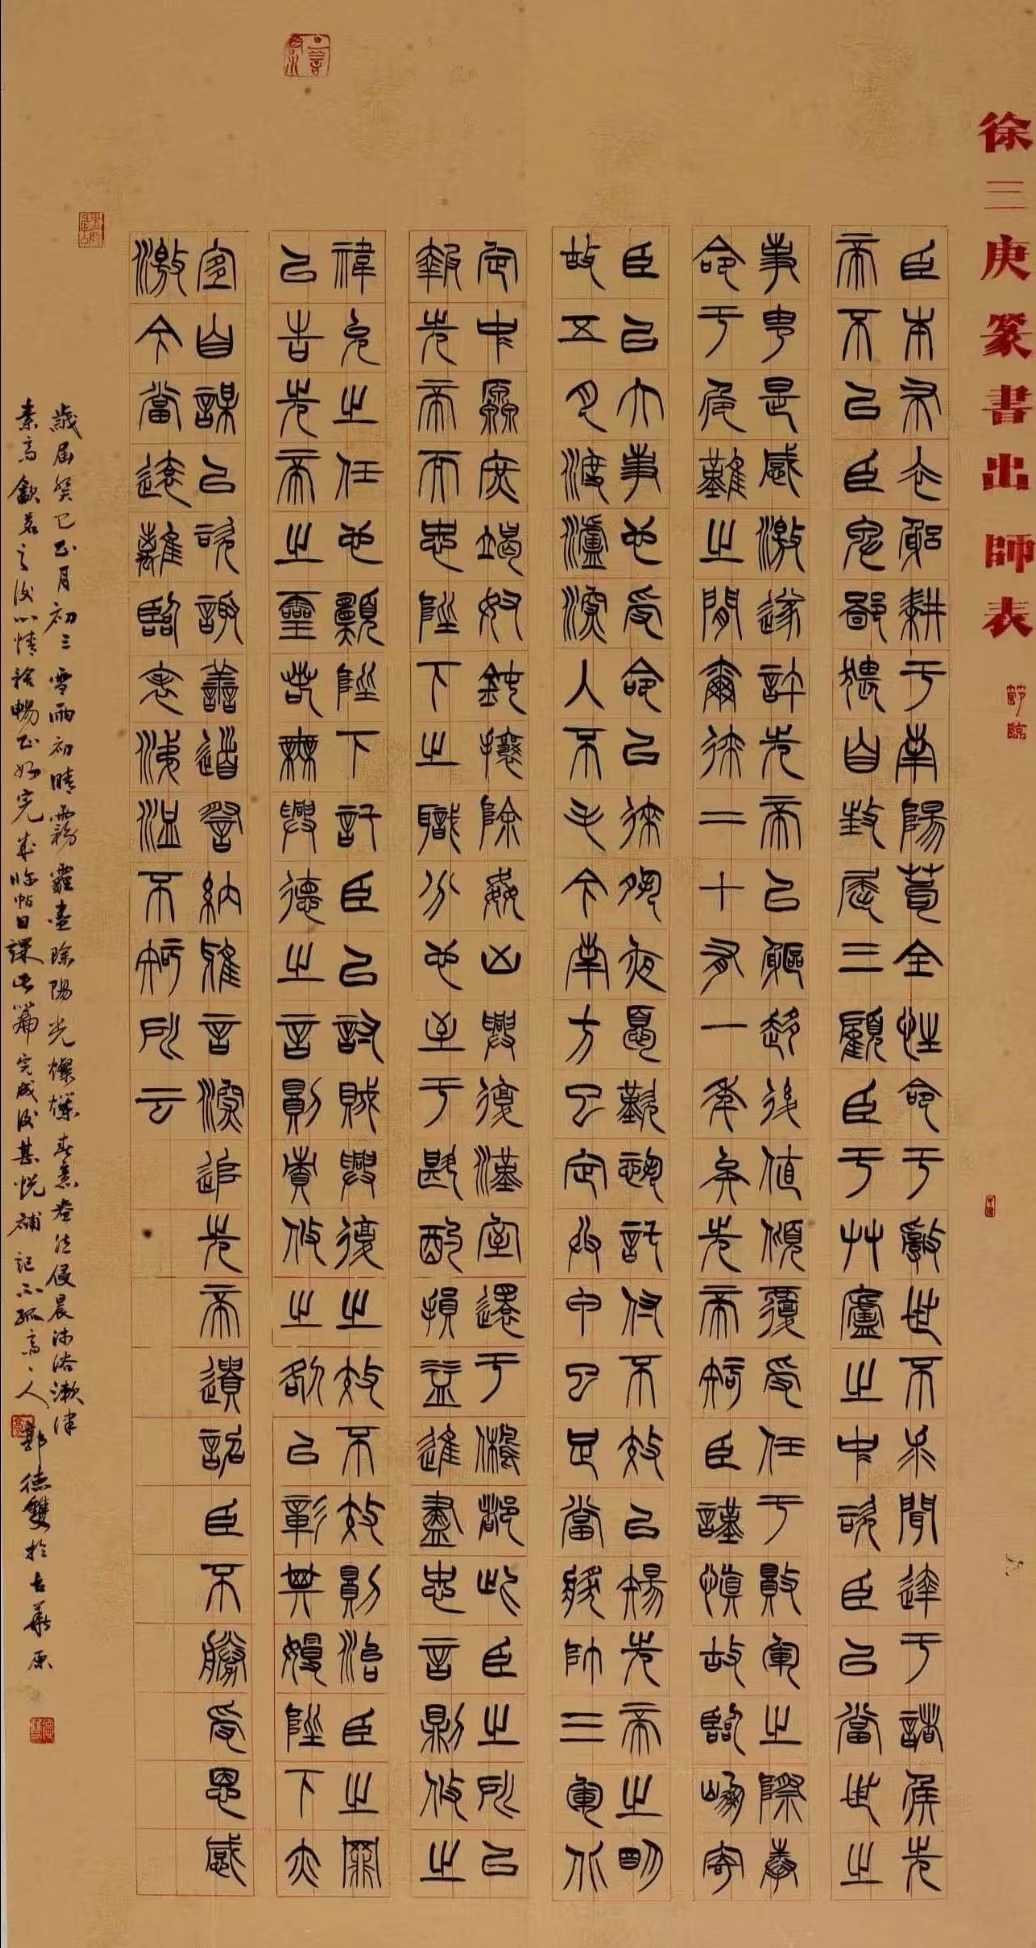 徐三庚篆書出師表
節臨
臣本布衣躬耕于南陽苟全性命于亂世不求聞達于諸侯先
帝不以臣卑鄙猥自枉屈三顧臣于艸廬之中諮臣以當世之
事由是感激遂許先帝以驅馳後值傾覆受任于敗軍之際奉
命于危難之間爾來二十有一年矣先帝知臣謹慎故臨崩寄
臣以大事也受命以來夙夜憂歎恐託付不效以傷先帝之明
故五月渡瀘深入不毛今南方已定兵甲已足當獎帥三軍北
定中原庶竭駑鈍攘除姦凶興復漢室還于舊都此臣之所以
報先帝而忠陛下之職分也至于斟酌損益進盡忠言則攸之
禕允之任也願陛下託臣以討賊興復之效不效則治臣之罪
以告先帝之靈若無興德之言則責攸之以彰其慢陛下亦
宜自謀以諮諏善道察納雅言深追先帝遺詔臣不勝受恩感
激今當遠離臨表涕不知所云
歲届癸巳正月初三雪雨初晴霧霾盡除陽光爍爍春意盎然侵晨沐浴漱津
素高茗之後心情舒暢正好完成臨帖日課此篇完成後甚悦補記孤高人鄭德雙於古華原